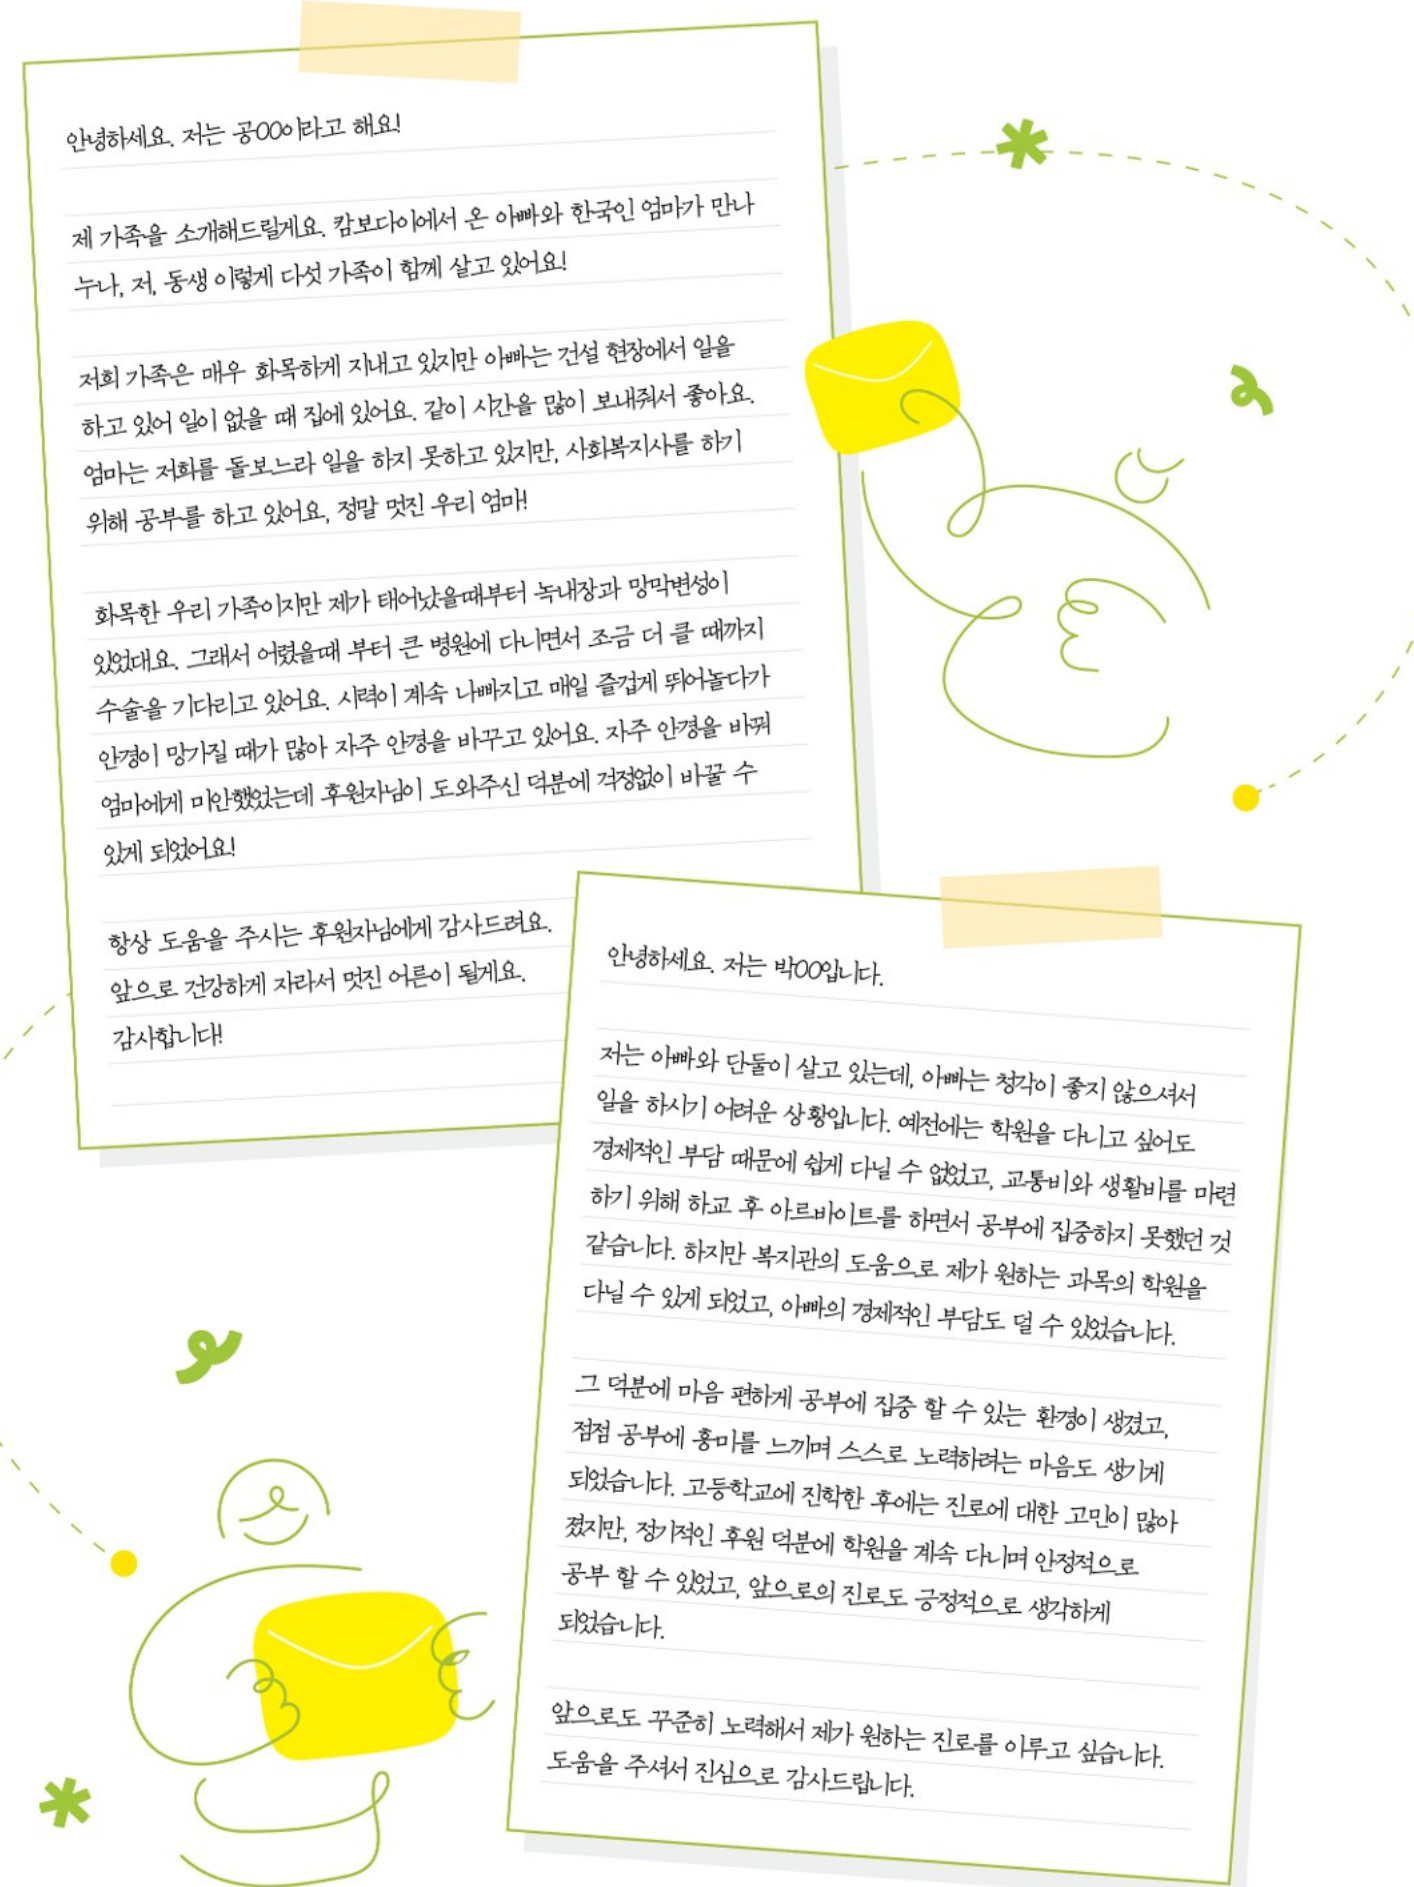 안녕하세요. 저는 공OO이라고 해요!
제 가족을 소개해드릴게요. 캄보다이에서 온 아빠와 한국인 엄마가 만나
누나, 저, 동생 이렇게 다섯 가족이 함께 살고 있어요!
저희 가족은 매우 화목하게 지내고 있지만 아빠는 건설 현장에서 일을
하고 있어 일이 없을 때 집에 있어요. 같이 시간을 많이 보내줘서 좋아요.
엄마는 저희를 돌보느라 일을 하지 못하고 있지만, 사회복지사를 하기
위해 공부를 하고 있어요, 정말 멋진 우리 엄마!
화목한 우리 가족이지만 제가 태어났을때부터 녹내장과 망막변성이
있었대요. 그래서 어렸을때 부터 큰 병원에 다니면서 조금 더 클 때까지
수술을 기다리고 있어요. 시력이 계속 나빠지고 매일 즐겁게 뛰어놀다가
안경이 망가질 때가 많아 자주 안경을 바꾸고 있어요. 자주 안경을 바꿔
엄마에게 미안했었는데 후원자님이 도와주신 덕분에 걱정없이 바꿀 수
있게 되었어요!
항상 도움을 주시는 후원자님에게 감사드려요.
앞으로 건강하게 자라서 멋진 어른이 될게요.
감사합니다!
안녕하세요. 저는 박OO입니다.
저는 아빠와 단둘이 살고 있는데, 아빠는 청각이 좋지 않으셔서
일을 하시기 어려운 상황입니다. 예전에는 학원을 다니고 싶어도
경제적인 부담 때문에 쉽게 다닐 수 없었고, 교통비와 생활비를 마련
하기 위해 하교 후 아르바이트를 하면서 공부에 집중하지 못했던 것
같습니다. 하지만 복지관의 도움으로 제가 원하는 과목의 학원을
다닐 수 있게 되었고, 아빠의 경제적인 부담도 덜 수 있었습니다.
그 덕분에 마음 편하게 공부에 집중 할 수 있는 환경이 생겼고,
점점 공부에 흥미를 느끼며 스스로 노력하려는 마음도 생기게
되었습니다. 고등학교에 진학한 후에는 진로에 대한 고민이 많아
졌지만, 정기적인 후원 덕분에 학원을 계속 다니며 안정적으로
공부 할 수 있었고, 앞으로의 진로도 긍정적으로 생각하게
되었습니다.
앞으로도 꾸준히 노력해서 제가 원하는 진로를 이루고 싶습니다.
도움을 주셔서 진심으로 감사드립니다.